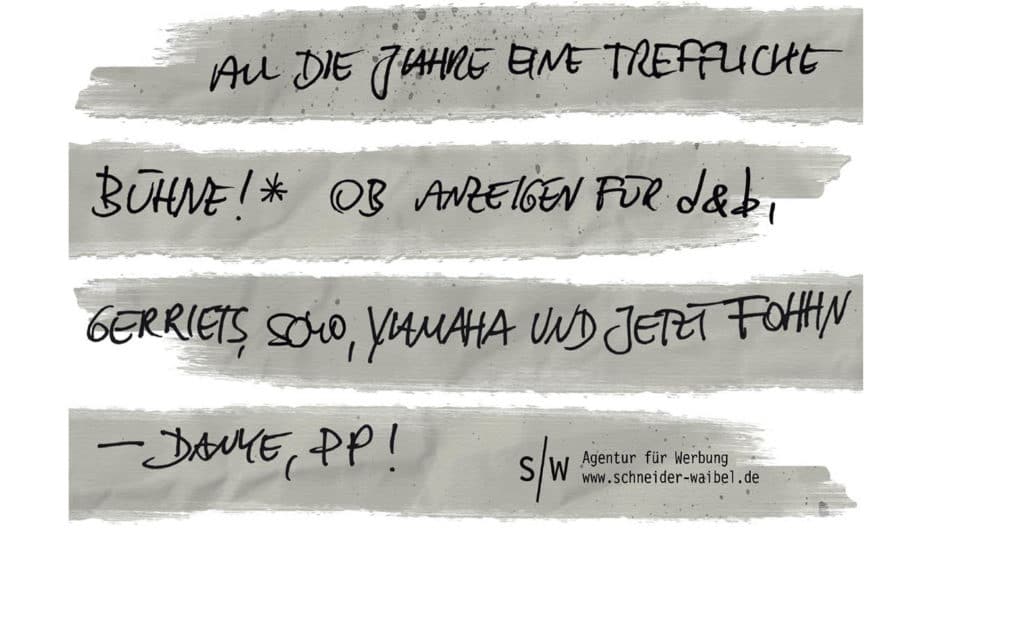 ALL DIE JAHRE EINE TREFFLICHE
BÜHNE!* OB ANZEIGEN FÜR d&b,
GERRIETS, SOLO, YAMAHA UND JETZT FOHHN
– DANKE, PP!
S/W Agentur für Werbung
www.schneider-waibel.de